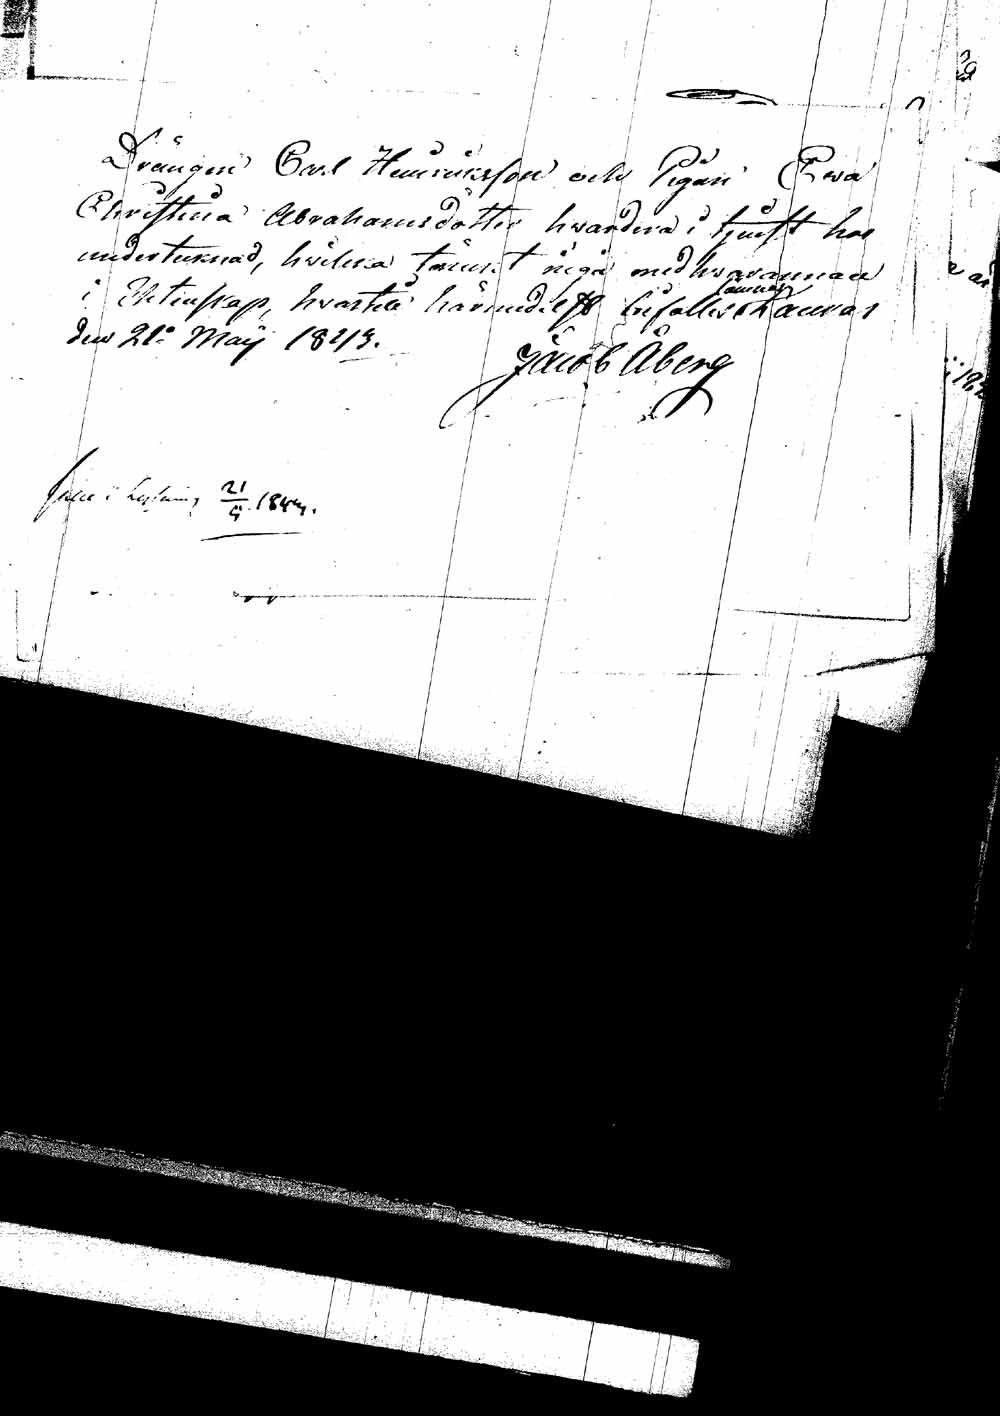 Drängen Carl Henriksson och Pigan Ewa
Christina Abrahamsdotter hwardera i tjenst hos
undertecknad, hwilka träna att ingå med hwarannan
i Ektenskap, hwartill härmedelst bifalles
den 21. Maÿ 1843.
Jacob Åberg
i 21/5 1843.